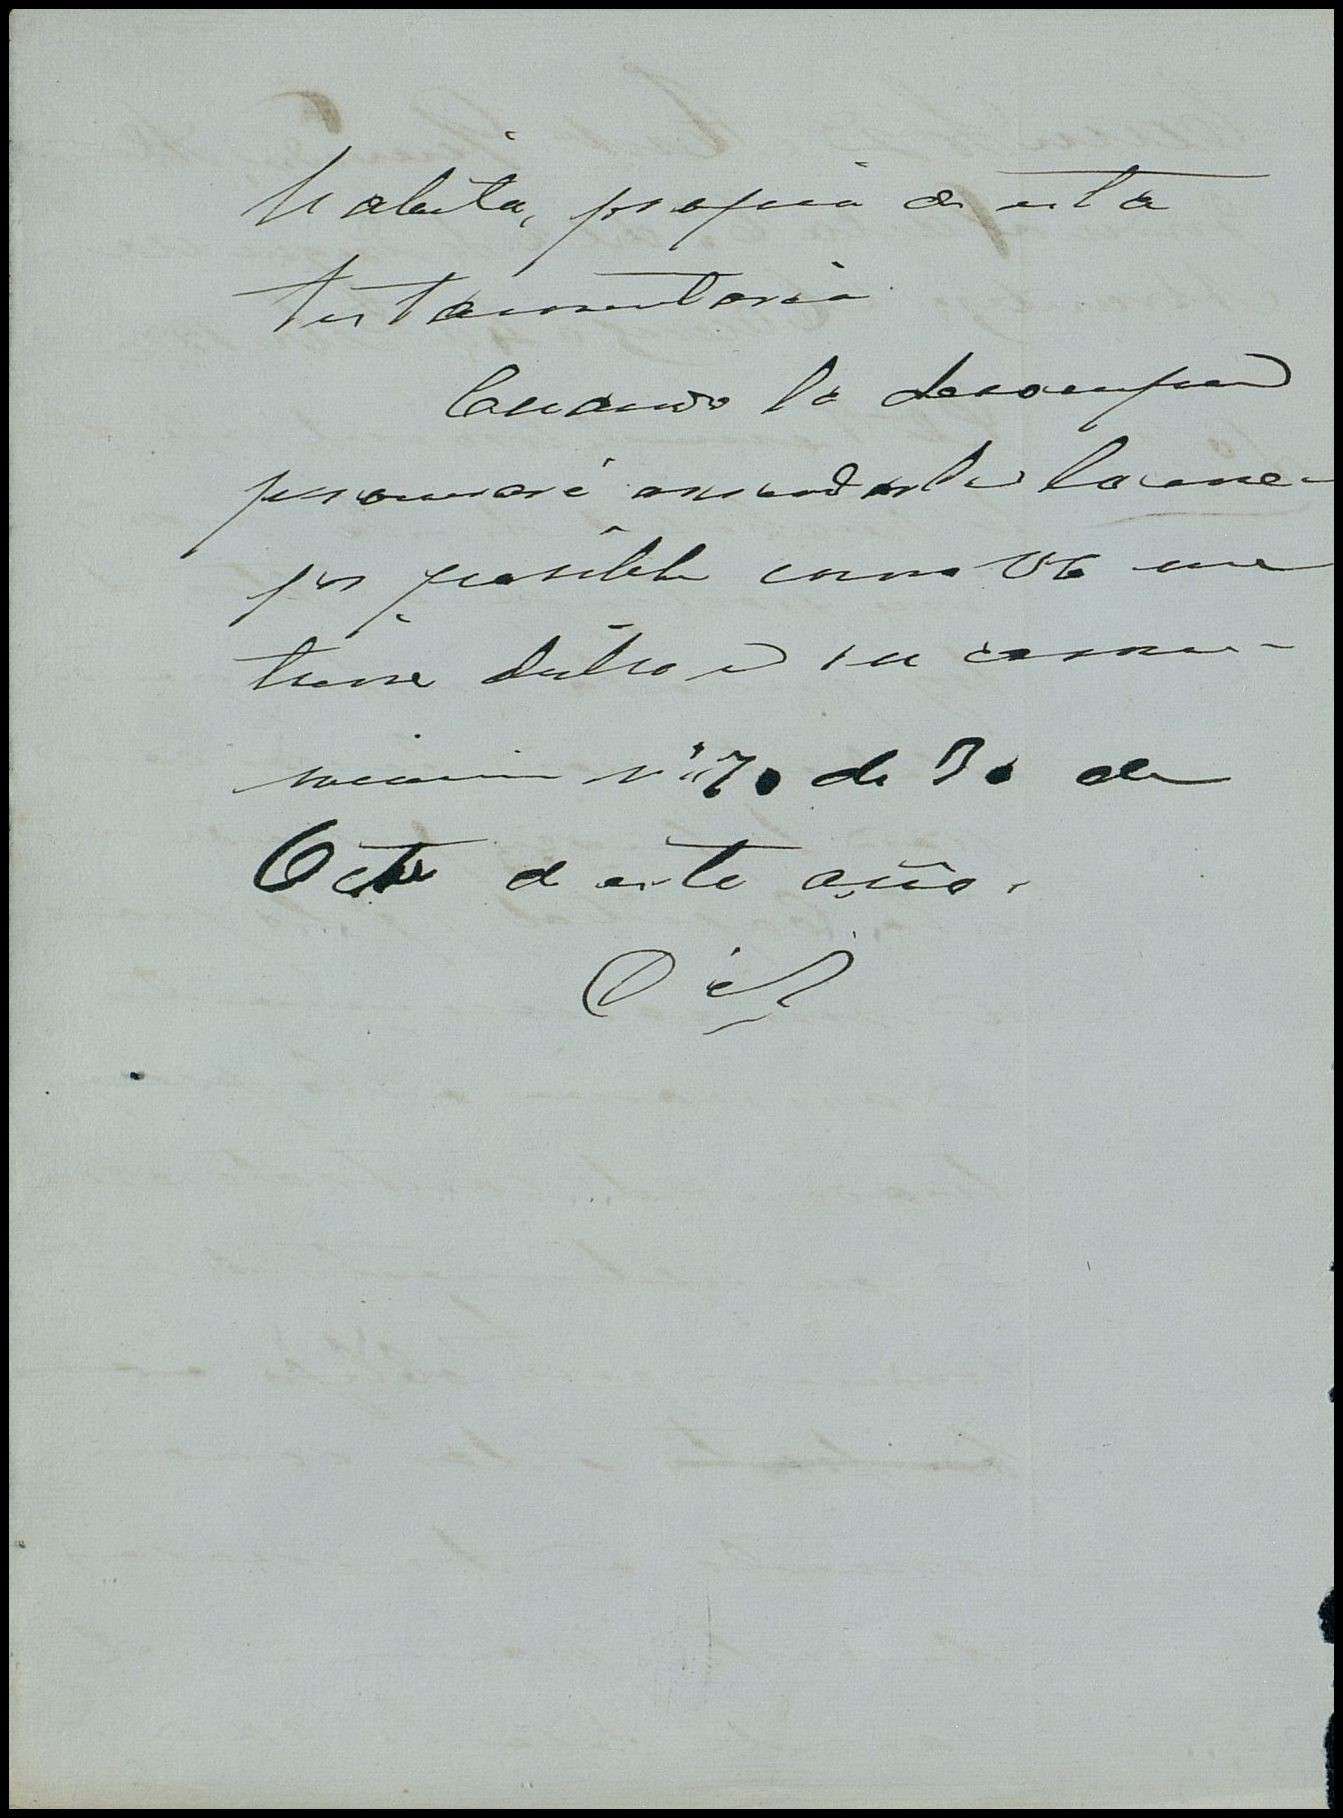 habita, propia de esta
testamentaria
Cuando la desocupen
procuraré arrendarla lo me-
jor posible como Vd me
tiene dicho en su comu-
nicacion nº 70 de 30 de
Octe de este año.